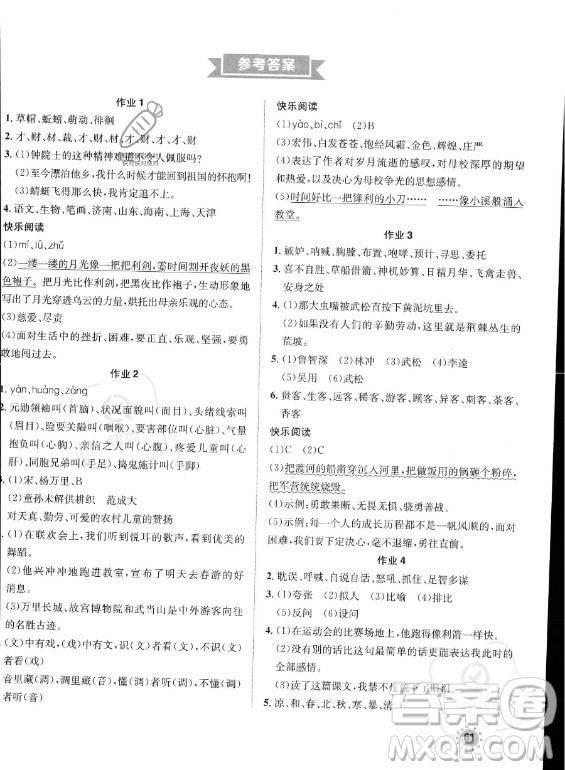 参考答案
作业 1
1. 草帽、蚯蚓、萌动、徘徊
2. 才,财,材,裁,才,财 财,才,材,才,财,才
3. (1)钟院士的这种精神难道不令人佩服吗?
(2)至今漂泊他乡,我们终会有机会才能回到祖国的怀抱啊!
(3)蜻蜓飞得那么快,我肯定追不上。
4. 语文、生物、笔画、济南、上海、天津
快乐阅读
(1)mí、lǚ、zhǔ
(2)一缕一缕的月光像一把把利剑,霎时间割开夜妖的黑
色袍子。把月光比作利剑,把黑夜比作袍子,生动形象地
写出了月光穿透乌云的景象,烘托出母亲乐观的心态。
(3)慈爱、尽责
(4)面对生活中的挫折、困难,要正直、乐观、坚强、勇
敢地闯过去。
作业 2
1. yán、huàng、zàng
2. 元勋领袖叫(首脑)、状况面貌叫(面目)、头绪线索叫
(眉目)、险要关隘叫(咽喉)、要害部位叫(心脏)、气量
胸怀叫(心胸)、亲信之人叫(心腹)、疼爱儿童叫(心
肝)、同胞兄弟叫(手足)、搞鬼施计叫(手脚)
3. (1)宋、杨万里、B
(2)童孙未解供耕织 范成大
对天真、勤劳、可爱的农村儿童的赞扬
4. (1)在联欢会上,我们听到悦耳的歌声,看到优美的
舞蹈。
(2)他兴冲冲地跑进教室,宣布了明天去春游的好
消息。
(3)万里长城、故宫博物院和武当山是中外游客向往
的名胜古迹。
(文)中有戏叫(文)看文,识(文)者看(文),不识(文)
者看(戏)
音里藏(调),调里藏(音),懂(调)者听(调),不懂(调)
者听(音)
快乐阅读
(1)yào、bì、chǐ (2)B
(3)宏伟、白发苍苍、饱经风霜、金色、辉煌、庄严
(4)表达了作者对岁月流逝的感叹,对母校深厚的期望
和热爱,以及决心为母校争光的思想感情。
(5)时间好比一把锋利的小刀…… ……像小溪般涌入
教堂。
作业 3
1. 嫉妒、呐喊、胸膛、布置、咆哮、预计、寻思、委托
2. 喜不自胜、草船借箭、神机妙算、日月如梭、飞禽走兽、
安身之处
3. (1)那大虫嘴被武松直按下黄泥坑里去。
(2)如果没有你们的辛勤劳动,这里就是荆棘丛生的
荒坡。
4. (1)鲁智深 (2)林冲 (3)武松 (4)李逵
(5)吴用 (6)武松
5. 贵客、生客、远客、政客、侠客、异客、刺客、茶客、
香客
快乐阅读
(1)C (2)C
(3)把渡河的船凿穿沉入河里,把做饭用的锅砸个粉碎,
把军营统统烧毁。
(4)示例:果敢勇毅、骁勇善战。
(5)示例:每一个人的成长历程都不是一帆风顺的,面对
困难,我们要下定决心,毫不退缩,勇往直前。
作业 4
2. 耽误、呼喊、自说自话、怒吼、抓住、足智多谋
3. (1)夸张 (2)拟人 (3)比喻 (4)排比
(5)反问 (6)设问
4. (1)在运动会的比赛场地上,他跑得像利箭一样快。
(2)没有别的话比这句最简单的话更能表达我当时的
全部感情。
(3)读了这篇课文,我禁不住
5. 凉、和、春、北、秋、寒、清
61